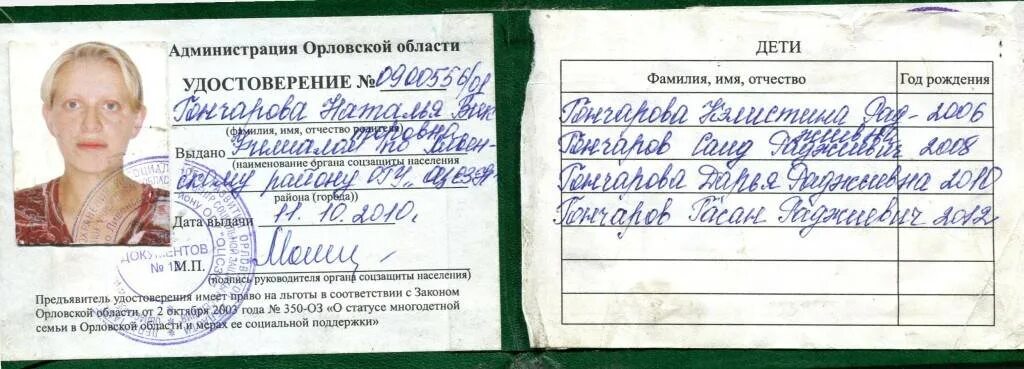 Администрация Орловской области
УДОСТОВЕРЕНИЕ № 0900556/01
Гончарова Наталья Вик
(фамилия, имя, отчество родителя)
Выдано Филиалом по
(наименование органа соцзащиты населения
скому району ОГУ "ОЦСЗН
района (города))
Дата выдачи 11.10.2010г
М.П.
(подпись руководителя органа соцзащиты населения)
Предъявитель удостоверения имеет право на льготы в соответствии с Законом
Орловской области от 2 октября 2003 года № 350-ОЗ «О статусе многодетной
семьи в Орловской области и мерах ее социальной поддержки»
ДОКУМЕНТОВ
№ 1
ДЕТИ
Фамилия, имя, отчество Год рождения
Гончарова Рад- 2006
жиевна
Гончаров Саид Раджиевич 2008
Гончарова Дарья Раджиевна 2010
Гончаров Гасан Раджиевич 2012